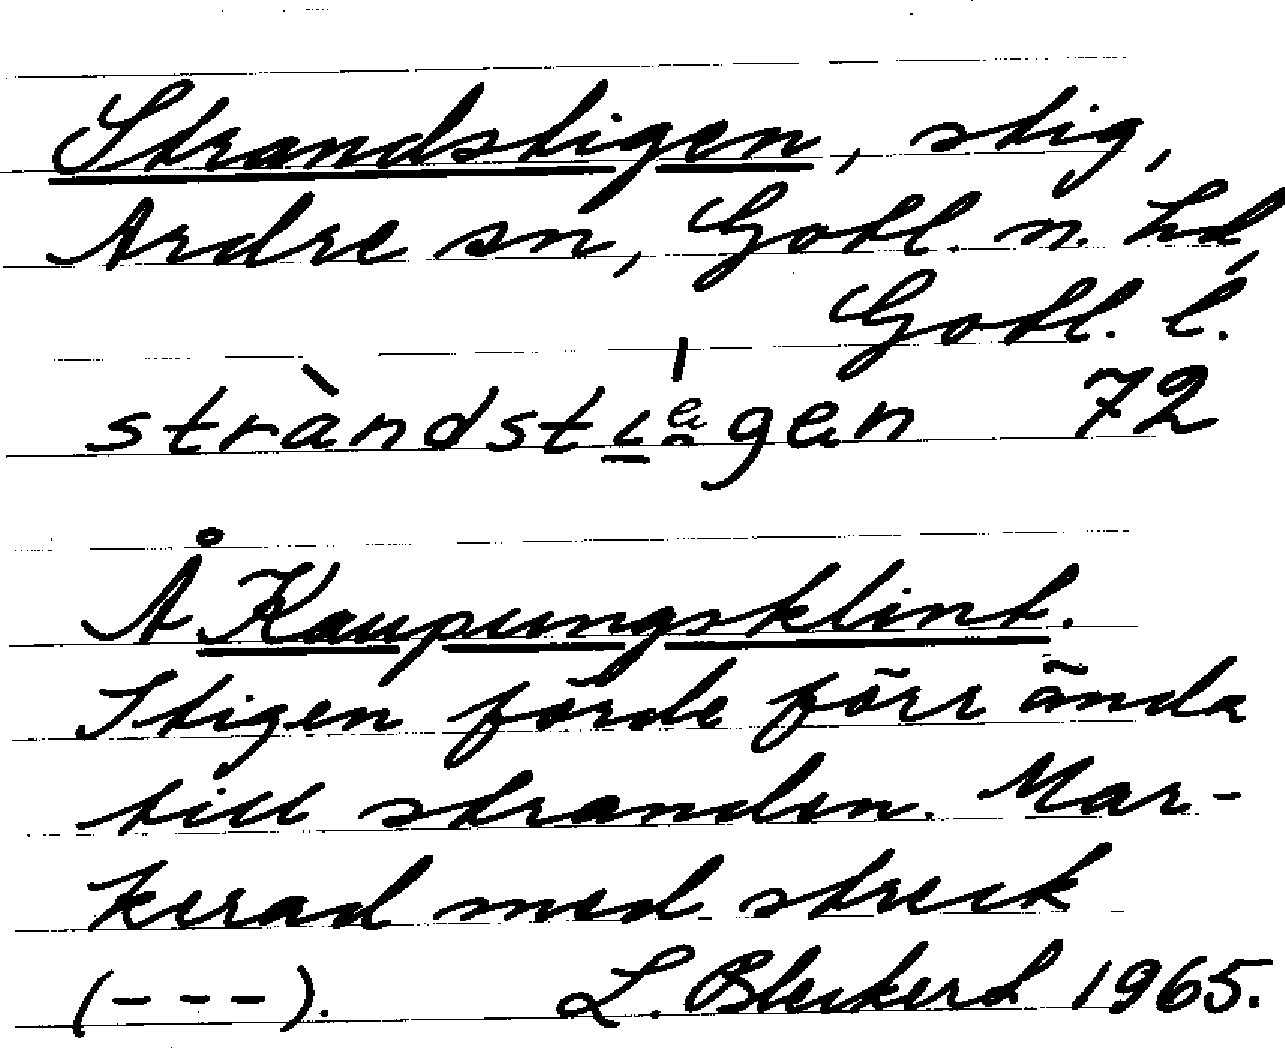 Strandstigen, stig,
Ardre sn, Gotl. n. hd,
Gotl. l.
stràndstigen 72
Å Kaupungsklint.
Stigen förde förr ända
till stranden. Mar-
kerad med streck
(---). L. Bleckert 1965.